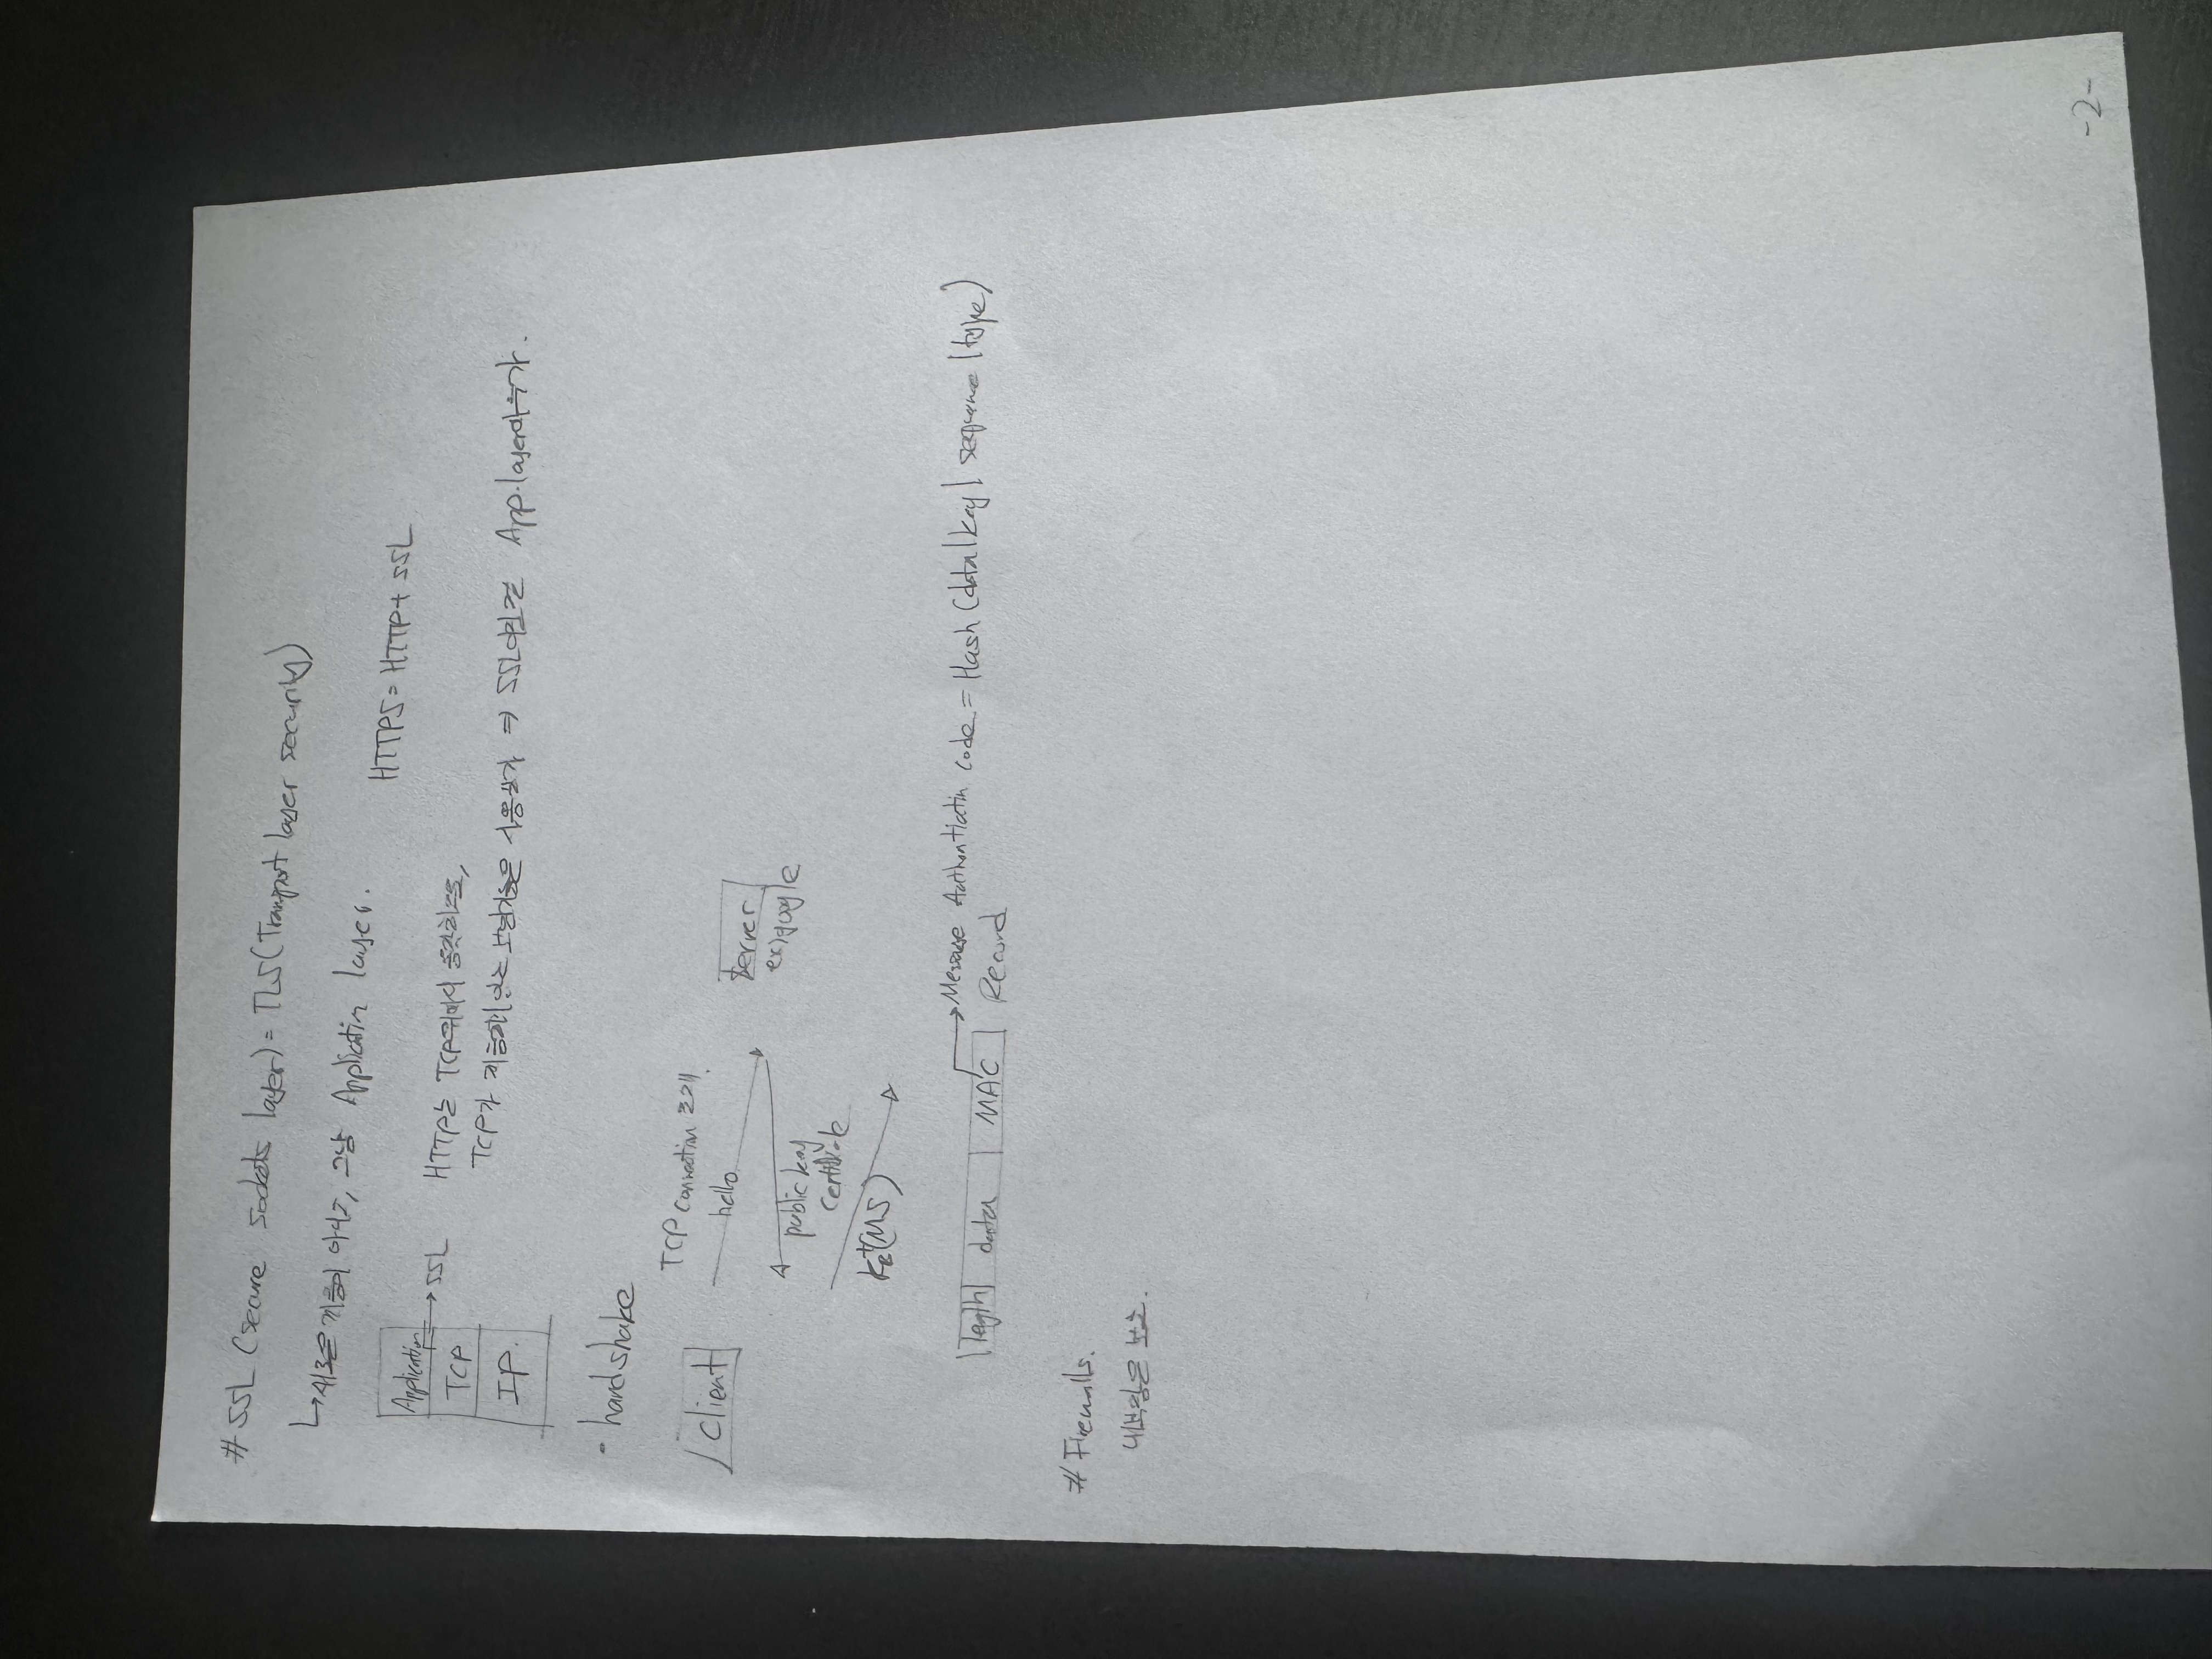 # SSL (secure sockets layer) = TLS (Transport layer security)
↳ 새로운 계층이 아니고, 그냥 Application layer.
HTTPS = HTTP + SSL
Application
→ SSL
TCP
IP.
HTTP는 TCP위에서 동작하므로,
TCP가 제공하지 않는 보안기능은 사용불가 ⇒ SSL이란걸 App.layer에 추가.
- handshake
TCP connection
client
hello
server
ex) google
public key
certificate
(MS)
→ Message Authentication code = Hash (data | key | sequence | type)
length data MAC Record
# Firewalls.
내부망은 보호.
-2-